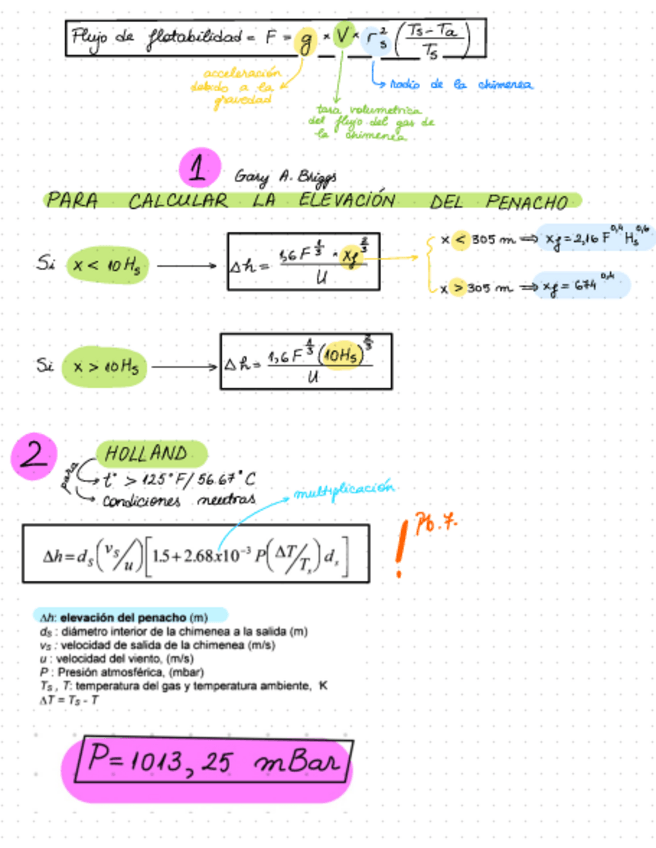 Flujo de flotabilidad = F = g × V × r_s^2 (Ts - Ta / Ts)
acceleración debido a la gravedad
radio de la chimenea
tasa volumetrica del flujo del gas de la chimenea
1
Gary A. Briggs
PARA CALCULAR LA ELEVACIÓN DEL PENACHO
Si x < 10 Hs → Δh = 1,6 F^(1/3) · xf^(2/3) / U
x < 305 m ⇒ xf = 2,16 F^0,4 Hs^0,6
x > 305 m ⇒ xf = 674^0,4
Si x > 10 Hs → Δh = 1,6 F^(1/3) (10Hs)^(2/3) / U
2
HOLLAND
para
t° > 125°F/56.67°C
condiciones neutras
multiplicación
Δh = d_s (v_s/u) [1.5 + 2.68x10^-3 P (ΔT/T_s) d_s]
! Pb. 7.
Δh: elevación del penacho (m)
ds : diámetro interior de la chimenea a la salida (m)
vs : velocidad de salida de la chimenea (m/s)
u : velocidad del viento, (m/s)
P : Presión atmosférica, (mbar)
Ts , T: temperatura del gas y temperatura ambiente, K
ΔT = Ts - T
P = 1013,25 mBar